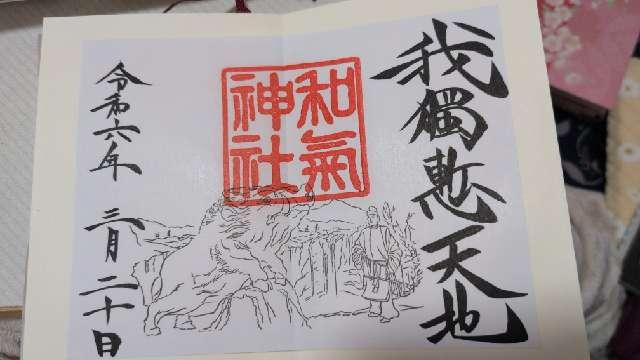 我獨慙天地
和氣
神社
令和六年 三月二十日